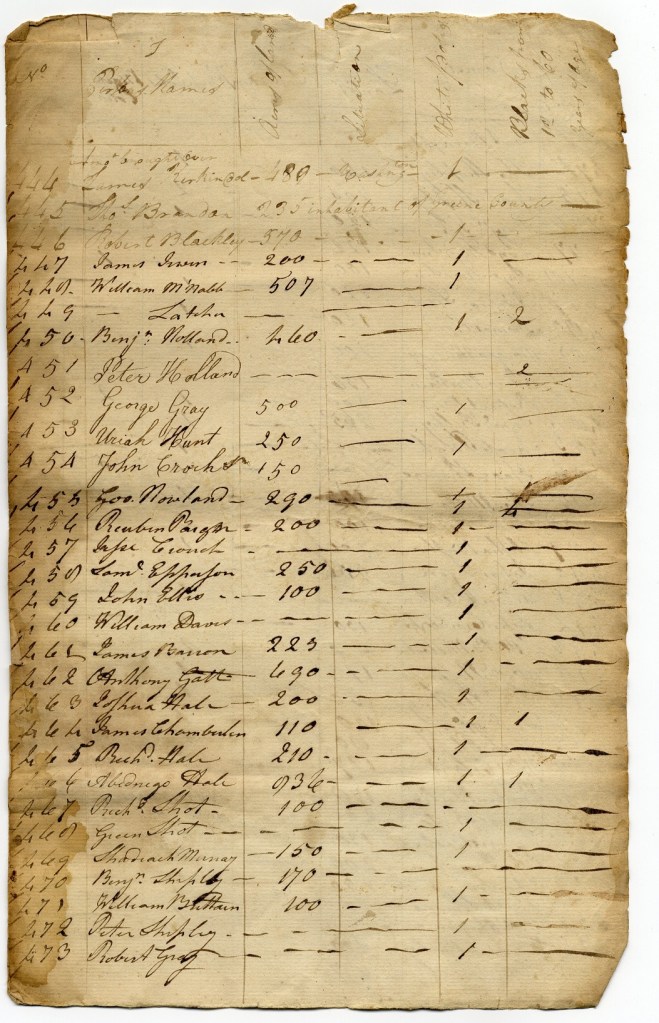 No Persons Names Acres of land Situation White poles Blacks from 12 to 60 years of age
Amt brought over
444 James 480 Washington 1
445 Thos. Brandon 235 inhabitent of Greene County
446 Robert Blackley 570 1
447 James Irwin 200 1
448 William McNabb 507 1
449 Latcha
450 Benjn. Holland 460 1 2
451 Peter Holland 2
452 George Gray 500 1
453 Uriah Hunt 250
454 John Croch Sr 150
455 Geo. Nowland 290 1 4
456 Reuben 200 1
457 Jesse Crouch 1
458 Saml. Epperson 250 1
459 John Ellis 100 1
460 William Davis 1
461 James Barron 223 1
462 Anthony Gott 690 1
463 Joshua Hale 200 1
464 James Chamberlen 110 1 1
465 Richd. Hale 210 1
466 Abednego Hale 936 1 1
467 Richd. Shot 100
468 Green Shot 1
469 Shadrach Murray 150 1
470 Benjn. Shipley 170
471 William Brittain 100 1
472 Peter Shipley 1
473 Robert Gray 1